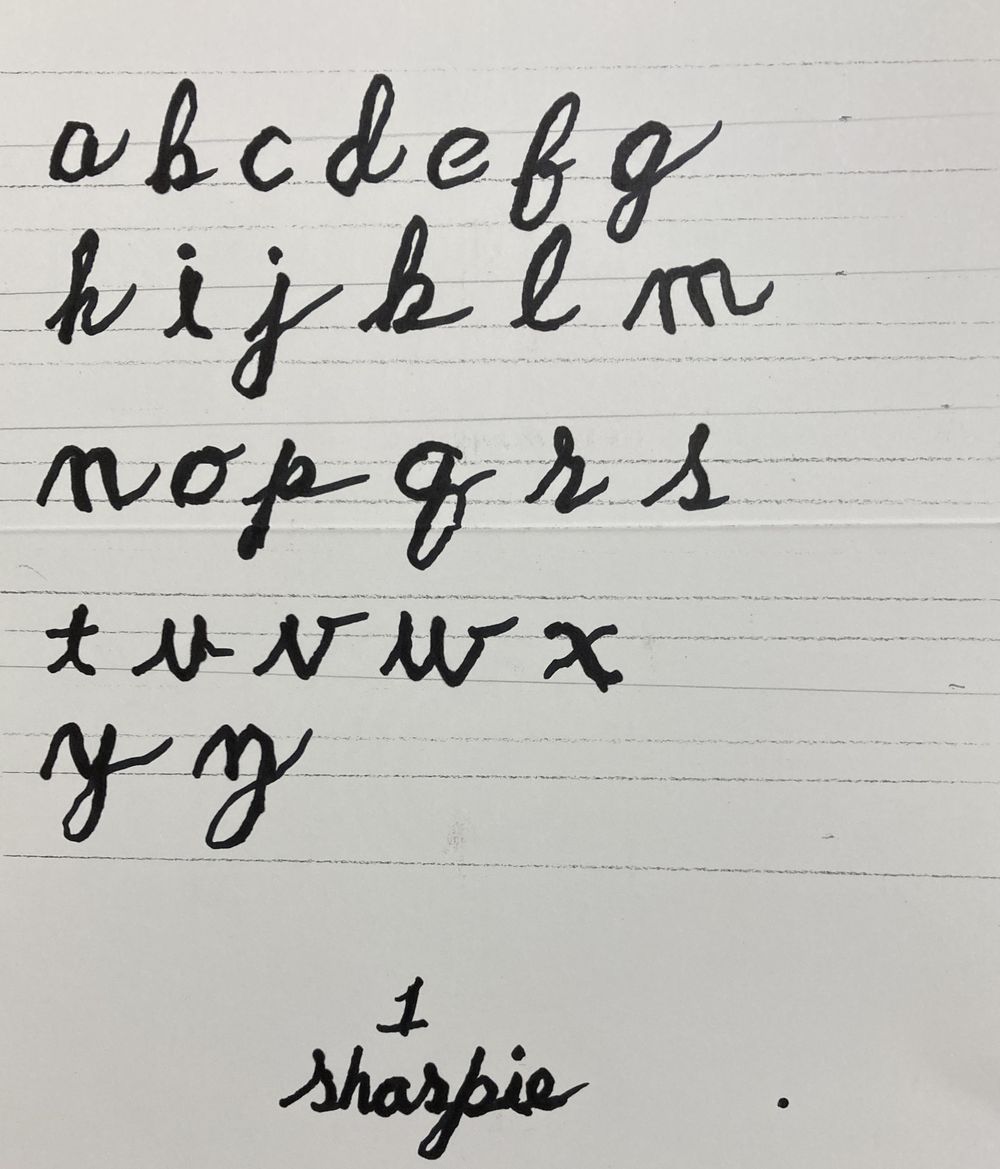 a b c d e f g
h i j k l m
n o p q r s
t u v w x
y z
1
sharpie